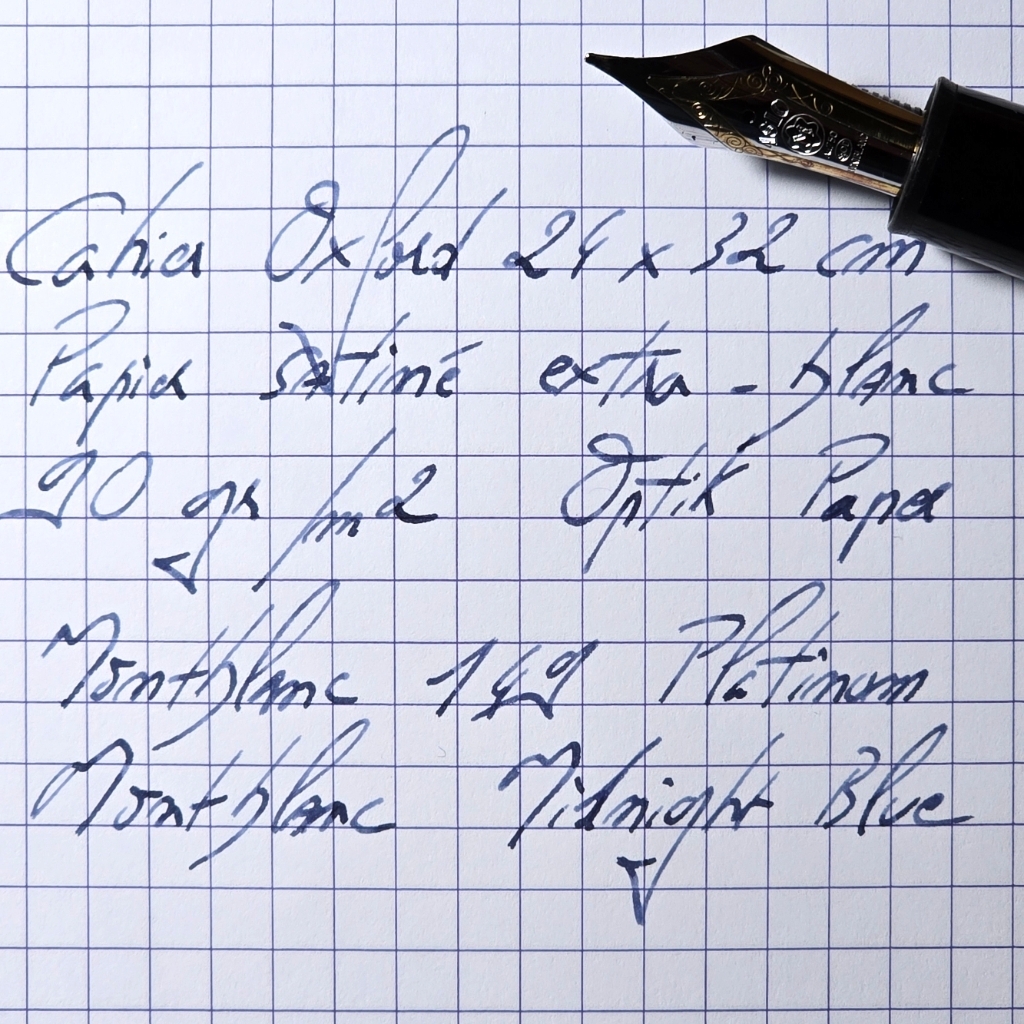 Cahier Oxford 24 x 32 cm
Papier satiné extra-blanc
90 gr/m2 Optik Paper
Montblanc 149 Platinum
Montblanc Midnight Blue